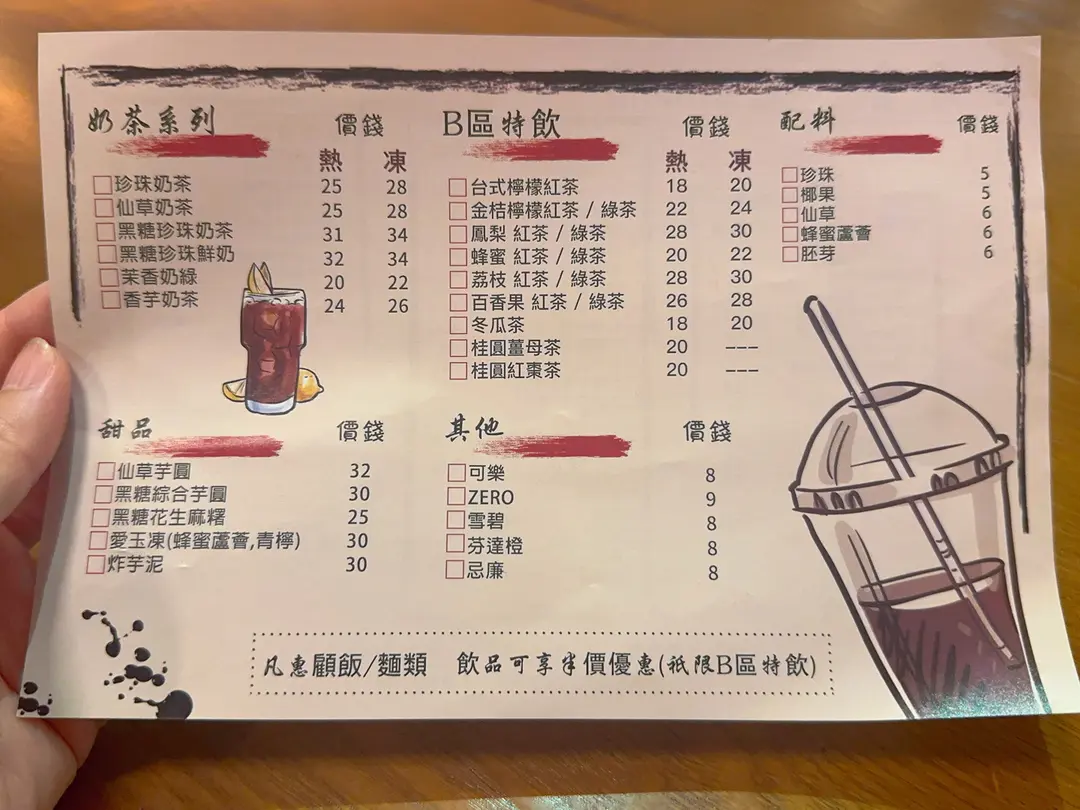 奶茶系列 價錢
熱 凍
珍珠奶茶 25 28
仙草奶茶 25 28
黑糖珍珠奶茶 31 34
黑糖珍珠鮮奶 32 34
茉香奶綠 20 22
香芋奶茶 24 26
B區特飲 價錢
熱 凍
台式檸檬紅茶 18 20
金桔檸檬紅茶 / 綠茶 22 24
鳳梨 紅茶 / 綠茶 28 30
蜂蜜 紅茶 / 綠茶 20 22
荔枝 紅茶 / 綠茶 28 30
百香果 紅茶 / 綠茶 26 28
冬瓜茶 18 20
桂圓薑母茶 20 ---
桂圓紅棗茶 20 ---
配料 價錢
珍珠 5
椰果 5
仙草 6
蜂蜜蘆薈 6
胚芽 6
甜品 價錢
仙草芋圓 32
黑糖綜合芋圓 30
黑糖花生麻糬 25
愛玉凍(蜂蜜蘆薈,青檸) 30
炸芋泥 30
其他 價錢
可樂 8
ZERO 9
雪碧 8
芬達橙 8
忌廉 8
凡惠顧飯/麵類 飲品可享半價優惠(祇限B區特飲)